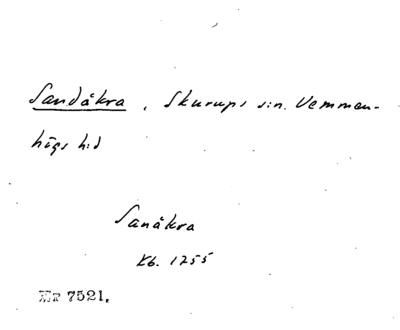 Sandåkra, Skurups s:n. Vemmen-
högs h:d
Sanåkra
Kb. 1755
Mr 7521.